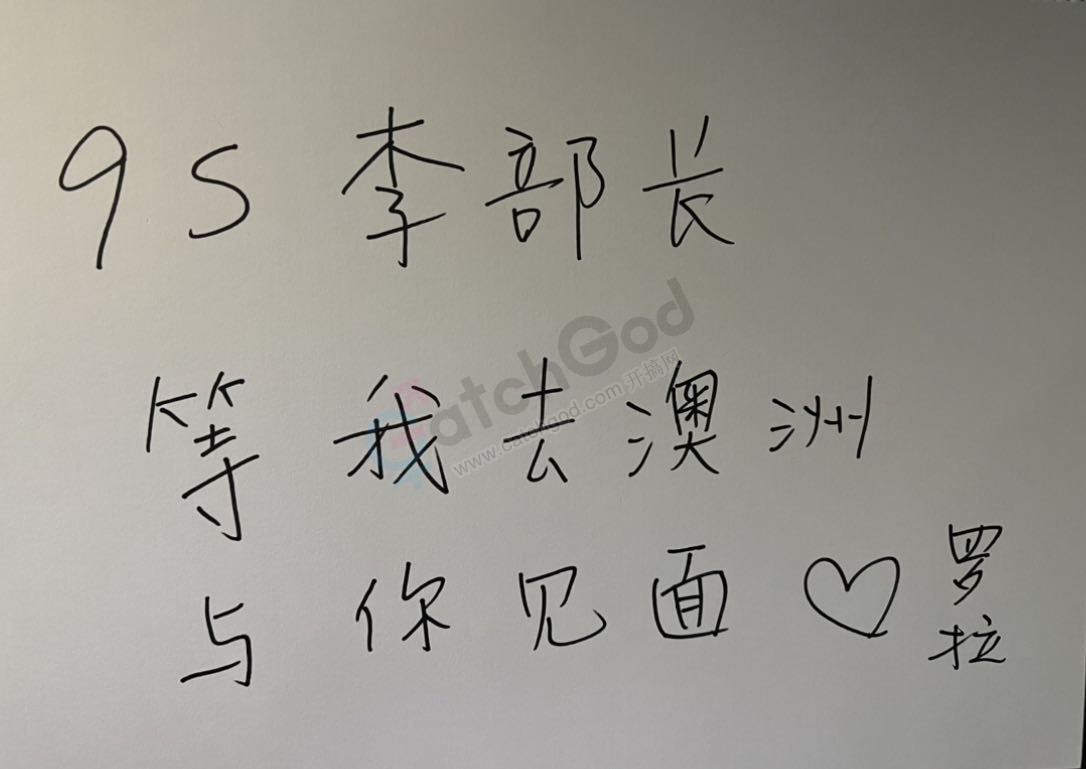 9S 李部长
等我去澳洲
与你见面♡罗拉
CatchGod
www.catchgod.com 开搞网